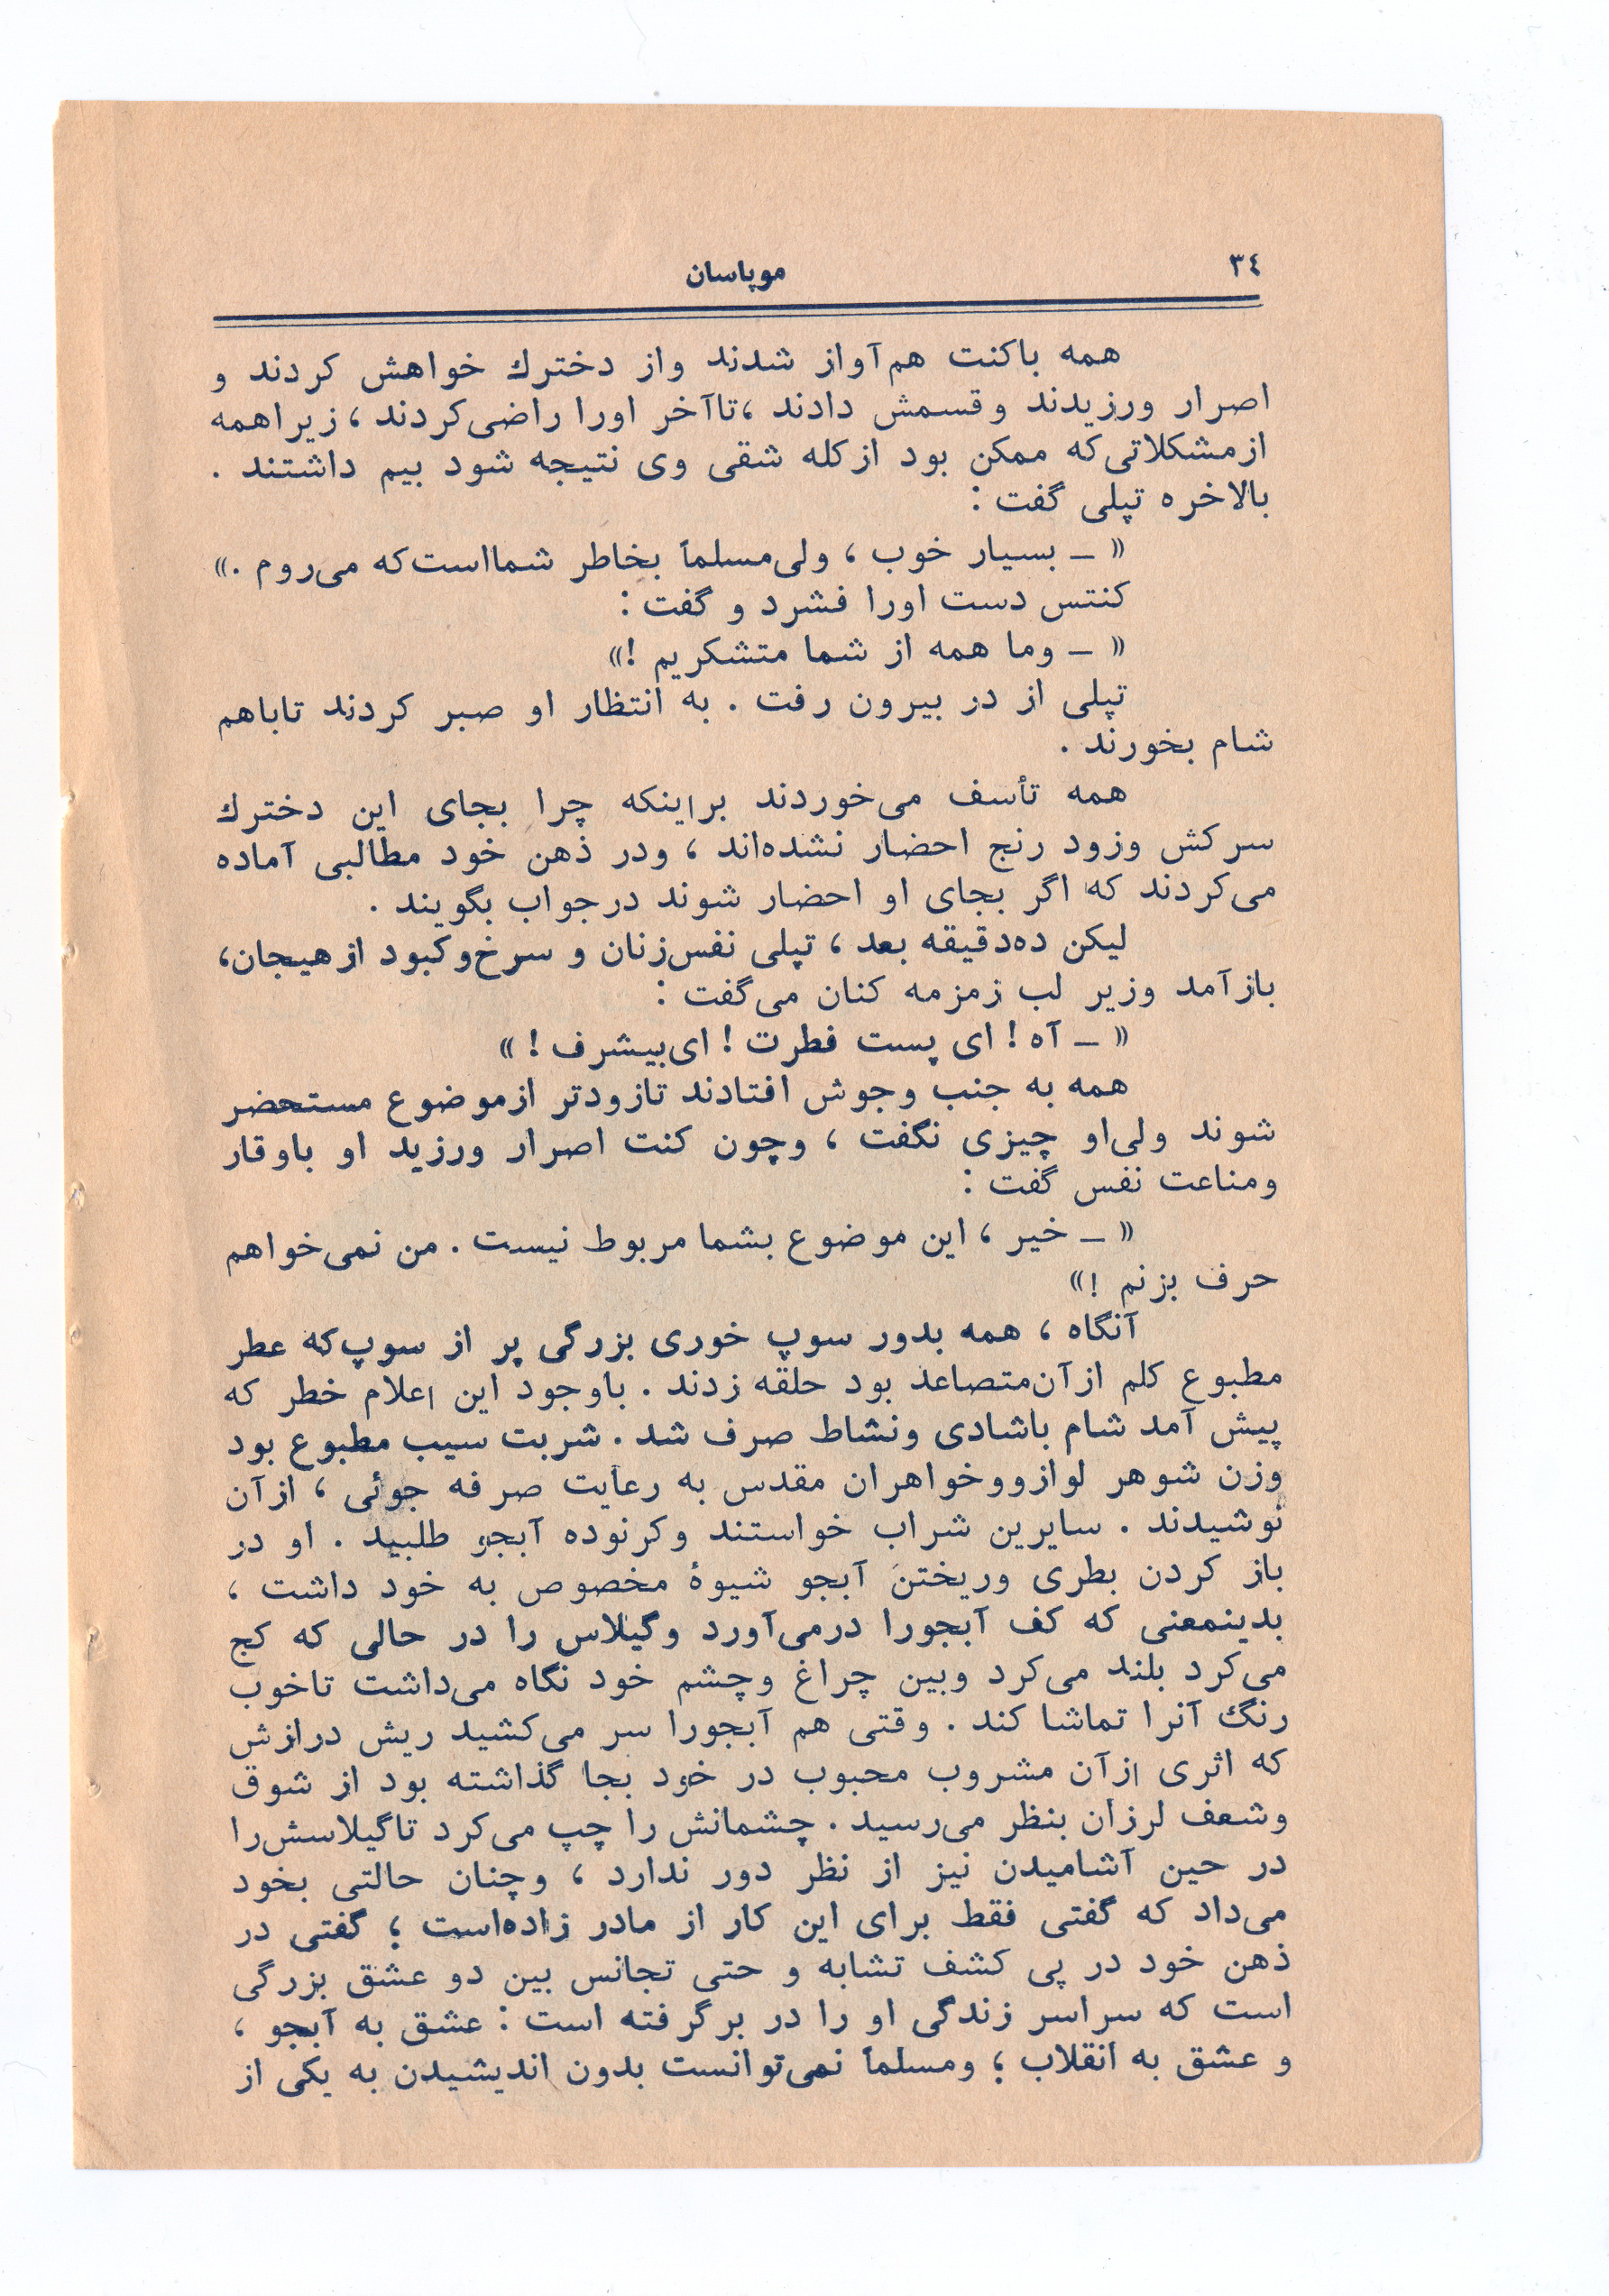 ٣٤
موپاسان
همه باکنت هم‌آواز شدند واز دخترك خواهش کردند و
اصرار ورزیدند وقسمش دادند ،تاآخر اورا راضی‌کردند ، زیراهمه
ازمشکلاتی‌که ممکن بود ازکله شقی وی نتیجه شود بیم داشتند .
بالاخره تپلی گفت :
« ـ بسیار خوب ، ولی‌مسلماً بخاطر شمااست‌که می‌روم .»
کنتس دست اورا فشرد و گفت :
« ـ وما همه از شما متشکریم !»
تپلی از در بیرون رفت . به انتظار او صبر کردند تاباهم
شام بخورند .
همه تأسف می‌خوردند براینکه چرا بجای این دخترك
سرکش وزود رنج احضار نشده‌اند ، ودر ذهن خود مطالبی آماده
می‌کردند که اگر بجای او احضار شوند درجواب بگویند .
لیکن ده‌دقیقه بعد ، تپلی نفس‌زنان و سرخ‌وکبود ازهیجان،
بازآمد وزیر لب زمزمه کنان می‌گفت :
« ـ آه ! ای پست فطرت ! ای‌بیشرف ! »
همه به جنب وجوش افتادند تازودتر ازموضوع مستحضر
شوند ولی‌او چیزی نگفت ، وچون کنت اصرار ورزید او باوقار
ومناعت نفس گفت :
« ـ خیر ، این موضوع بشما مربوط نیست . من نمی‌خواهم
حرف بزنم !»
آنگاه ، همه بدور سوپ خوری بزرگی پر از سوپ‌که عطر
مطبوع کلم ازآن‌متصاعد بود حلقه زدند . باوجود این اعلام خطر که
پیش آمد شام باشادی ونشاط صرف شد . شربت سیب مطبوع بود
وزن شوهر لوازووخواهران مقدس به رعایت صرفه جوئی ، ازآن
نوشیدند . سایرین شراب خواستند وکرنوده آبجو طلبید . او در
باز کردن بطری وریختن آبجو شیوهٔ مخصوص به خود داشت ،
بدینمعنی که کف آبجورا درمی‌آورد وگیلاس را در حالی که کج
می‌کرد بلند می‌کرد وبین چراغ وچشم خود نگاه می‌داشت تاخوب
رنگ آنرا تماشا کند . وقتی هم آبجورا سر می‌کشید ریش درازش
که اثری ازآن مشروب محبوب در خود بجا گذاشته بود از شوق
وشعف لرزان بنظر می‌رسید . چشمانش را چپ می‌کرد تاگیلاسش‌را
در حین آشامیدن نیز از نظر دور ندارد ، وچنان حالتی بخود
می‌داد که گفتی فقط برای این کار از مادر زاده‌است ؛ گفتی در
ذهن خود در پی کشف تشابه و حتی تجانس بین دو عشق بزرگی
است که سراسر زندگی او را در برگرفته است : عشق به آبجو ،
و عشق به انقلاب ؛ ومسلماً نمی‌توانست بدون اندیشیدن به یکی از